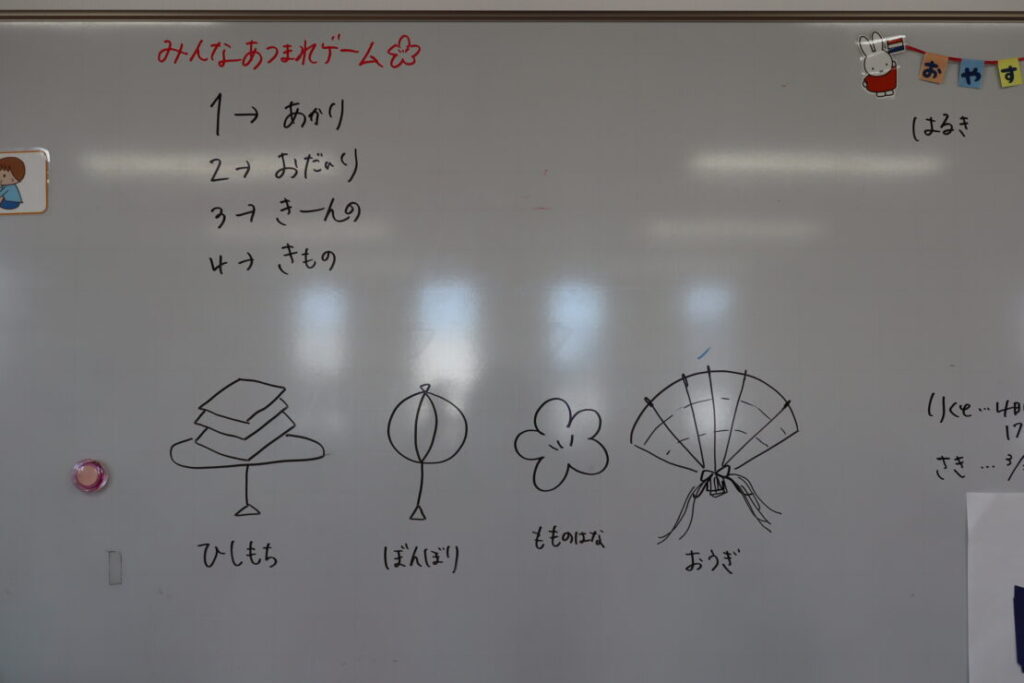 みんなあつまれゲーム
1→ あかり
2→ おだいり
3→ きーんの
4→ きもの
おやす
はるき
ひしもち
ぼんぼり
もものはな
おうぎ
りくと…4
17
さき …3/